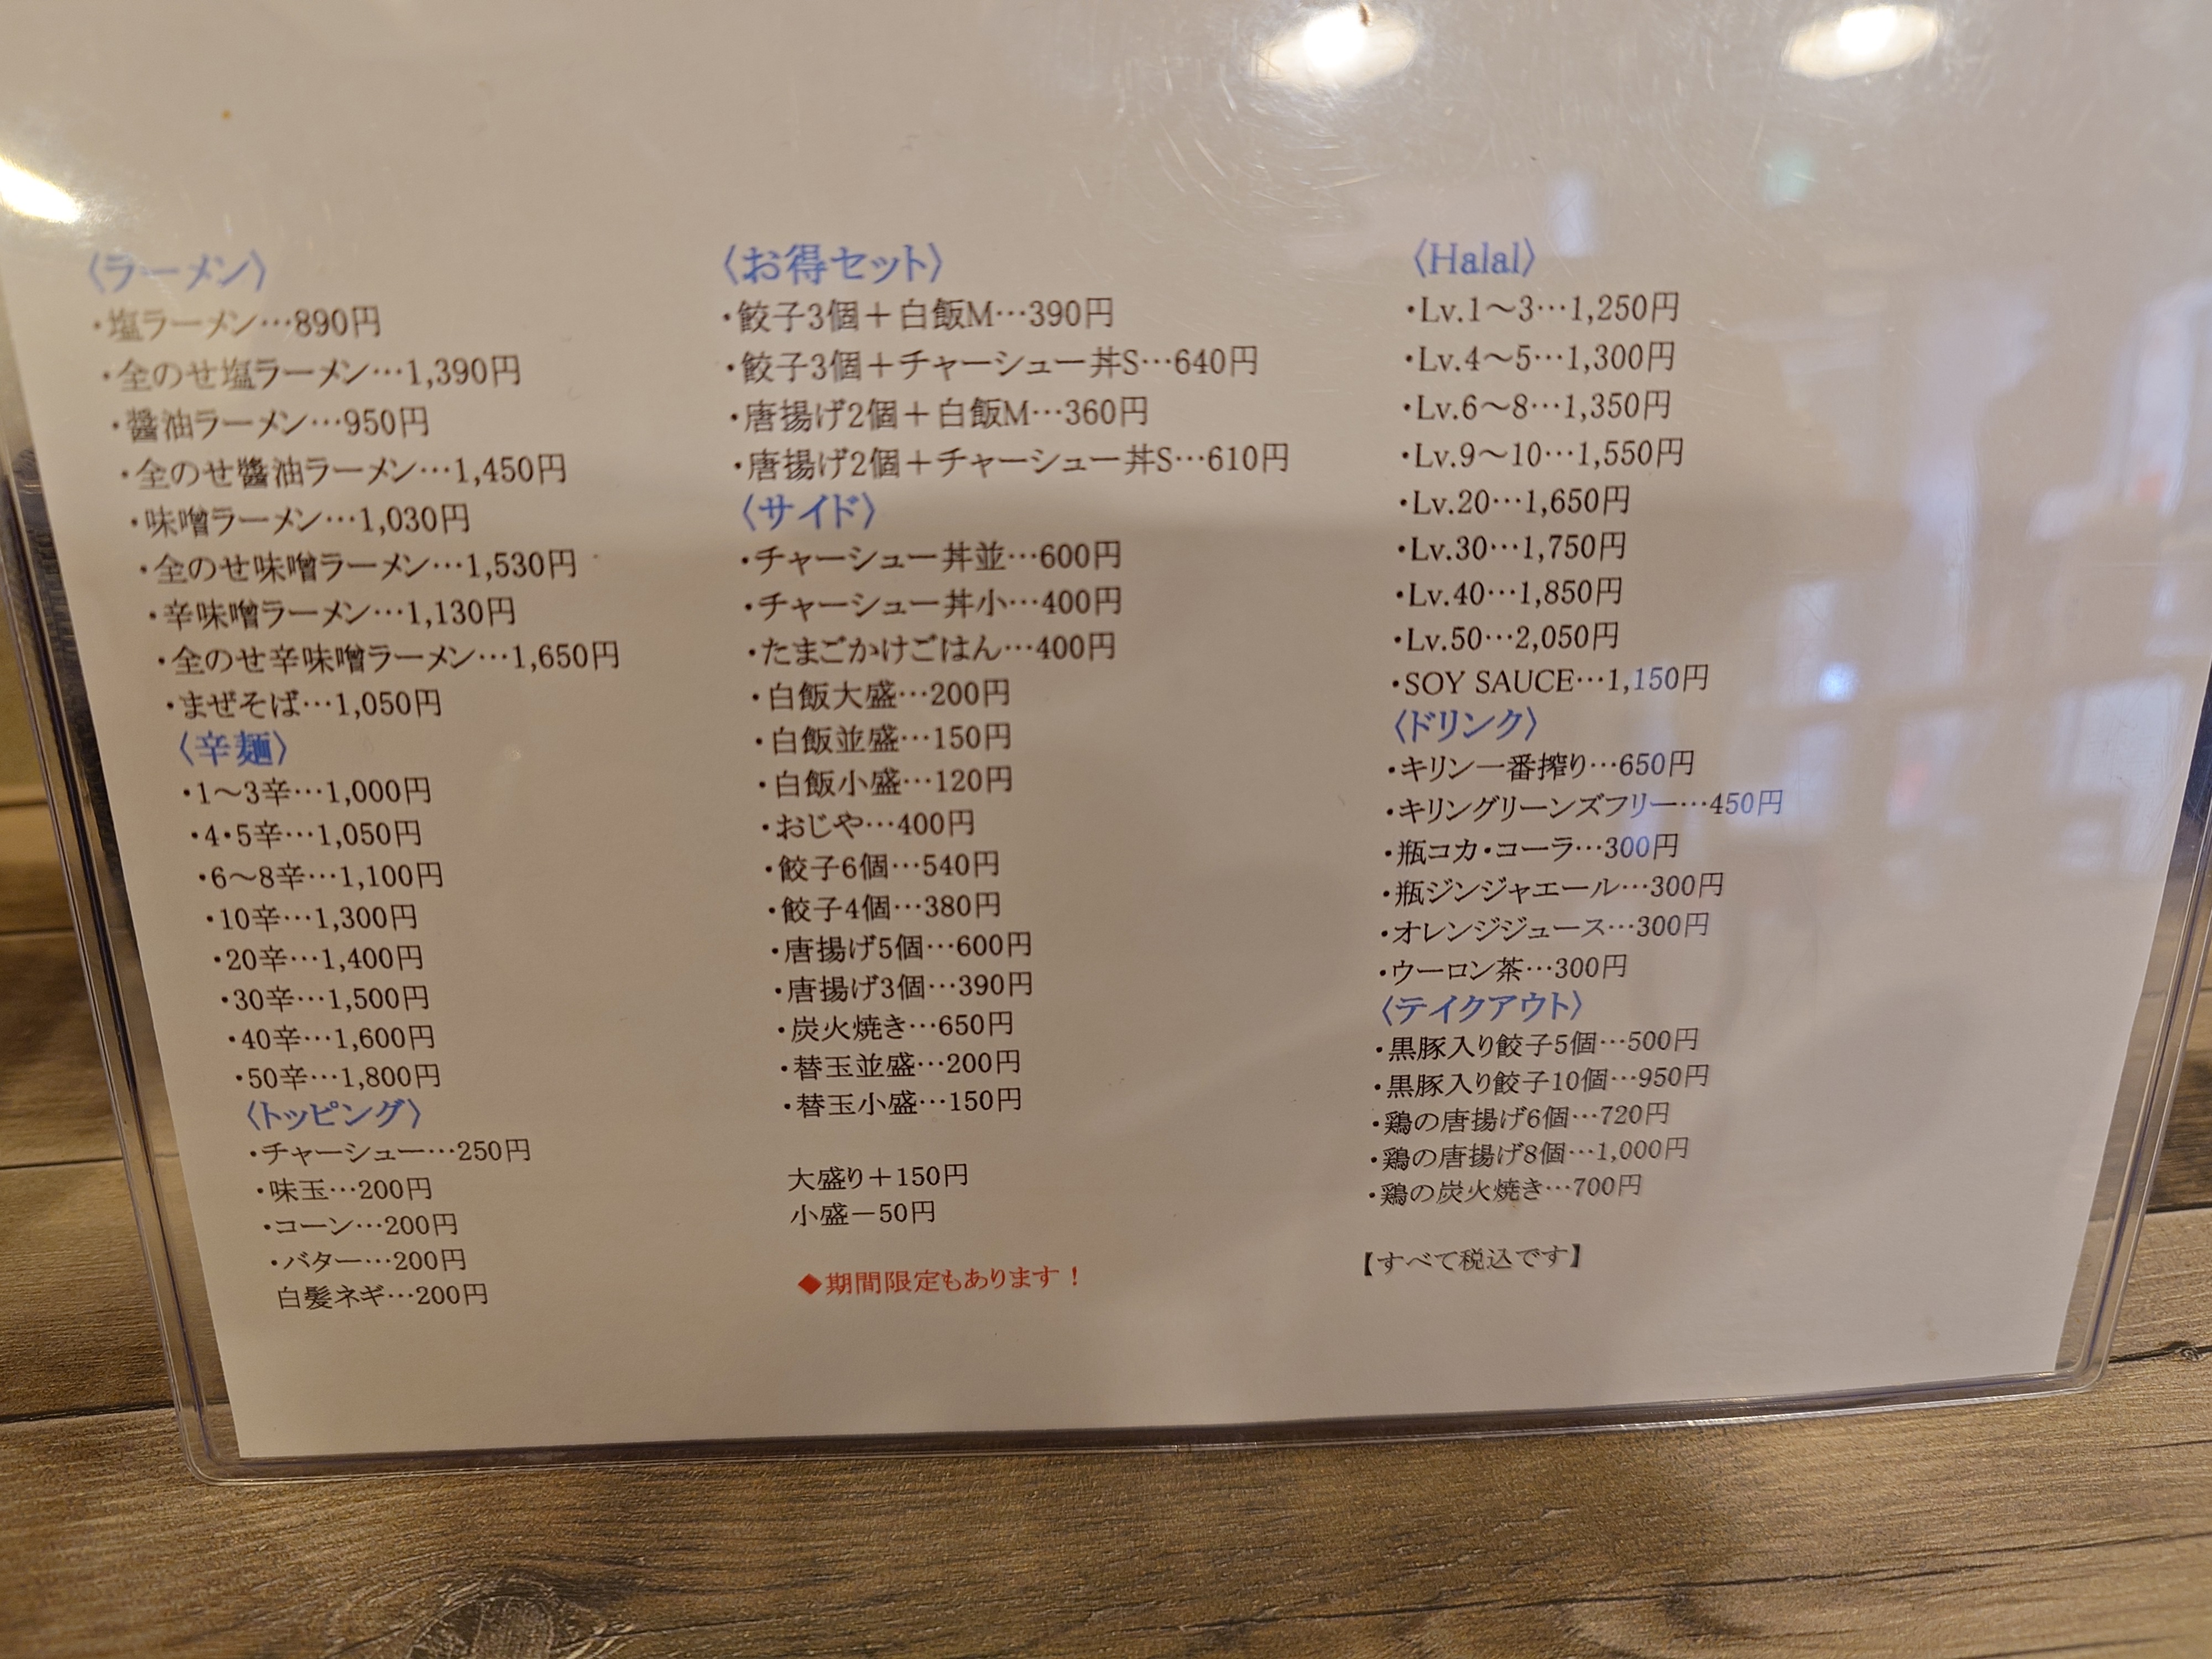 〈ラーメン〉
・塩ラーメン…890円
・全のせ塩ラーメン…1,390円
・醤油ラーメン…950円
・全のせ醤油ラーメン…1,450円
・味噌ラーメン…1,030円
・全のせ味噌ラーメン…1,530円
・辛味噌ラーメン…1,130円
・全のせ辛味噌ラーメン…1,650円
・まぜそば…1,050円
〈辛麺〉
・1～3辛…1,000円
・4・5辛…1,050円
・6～8辛…1,100円
・10辛…1,300円
・20辛…1,400円
・30辛…1,500円
・40辛…1,600円
・50辛…1,800円
〈トッピング〉
・チャーシュー…250円
・味玉…200円
・コーン…200円
・バター…200円
白髪ネギ…200円
〈お得セット〉
・餃子3個＋白飯M…390円
・餃子3個＋チャーシュー丼S…640円
・唐揚げ2個＋白飯M…360円
・唐揚げ2個＋チャーシュー丼S…610円
〈サイド〉
・チャーシュー丼並…600円
・チャーシュー丼小…400円
・たまごかけごはん…400円
・白飯大盛…200円
・白飯並盛…150円
・白飯小盛…120円
・おじや…400円
・餃子6個…540円
・餃子4個…380円
・唐揚げ5個…600円
・唐揚げ3個…390円
・炭火焼き…650円
・替玉並盛…200円
・替玉小盛…150円
大盛り＋150円
小盛－50円
◆期間限定もあります！
〈Halal〉
・Lv.1～3…1,250円
・Lv.4～5…1,300円
・Lv.6～8…1,350円
・Lv.9～10…1,550円
・Lv.20…1,650円
・Lv.30…1,750円
・Lv.40…1,850円
・Lv.50…2,050円
・SOY SAUCE…1,150円
〈ドリンク〉
・キリン一番搾り…650円
・キリングリーンズフリー…450円
・瓶コカ・コーラ…300円
・瓶ジンジャエール…300円
・オレンジジュース…300円
・ウーロン茶…300円
〈テイクアウト〉
・黒豚入り餃子5個…500円
・黒豚入り餃子10個…950円
・鶏の唐揚げ6個…720円
・鶏の唐揚げ8個…1,000円
・鶏の炭火焼き…700円
【すべて税込です】